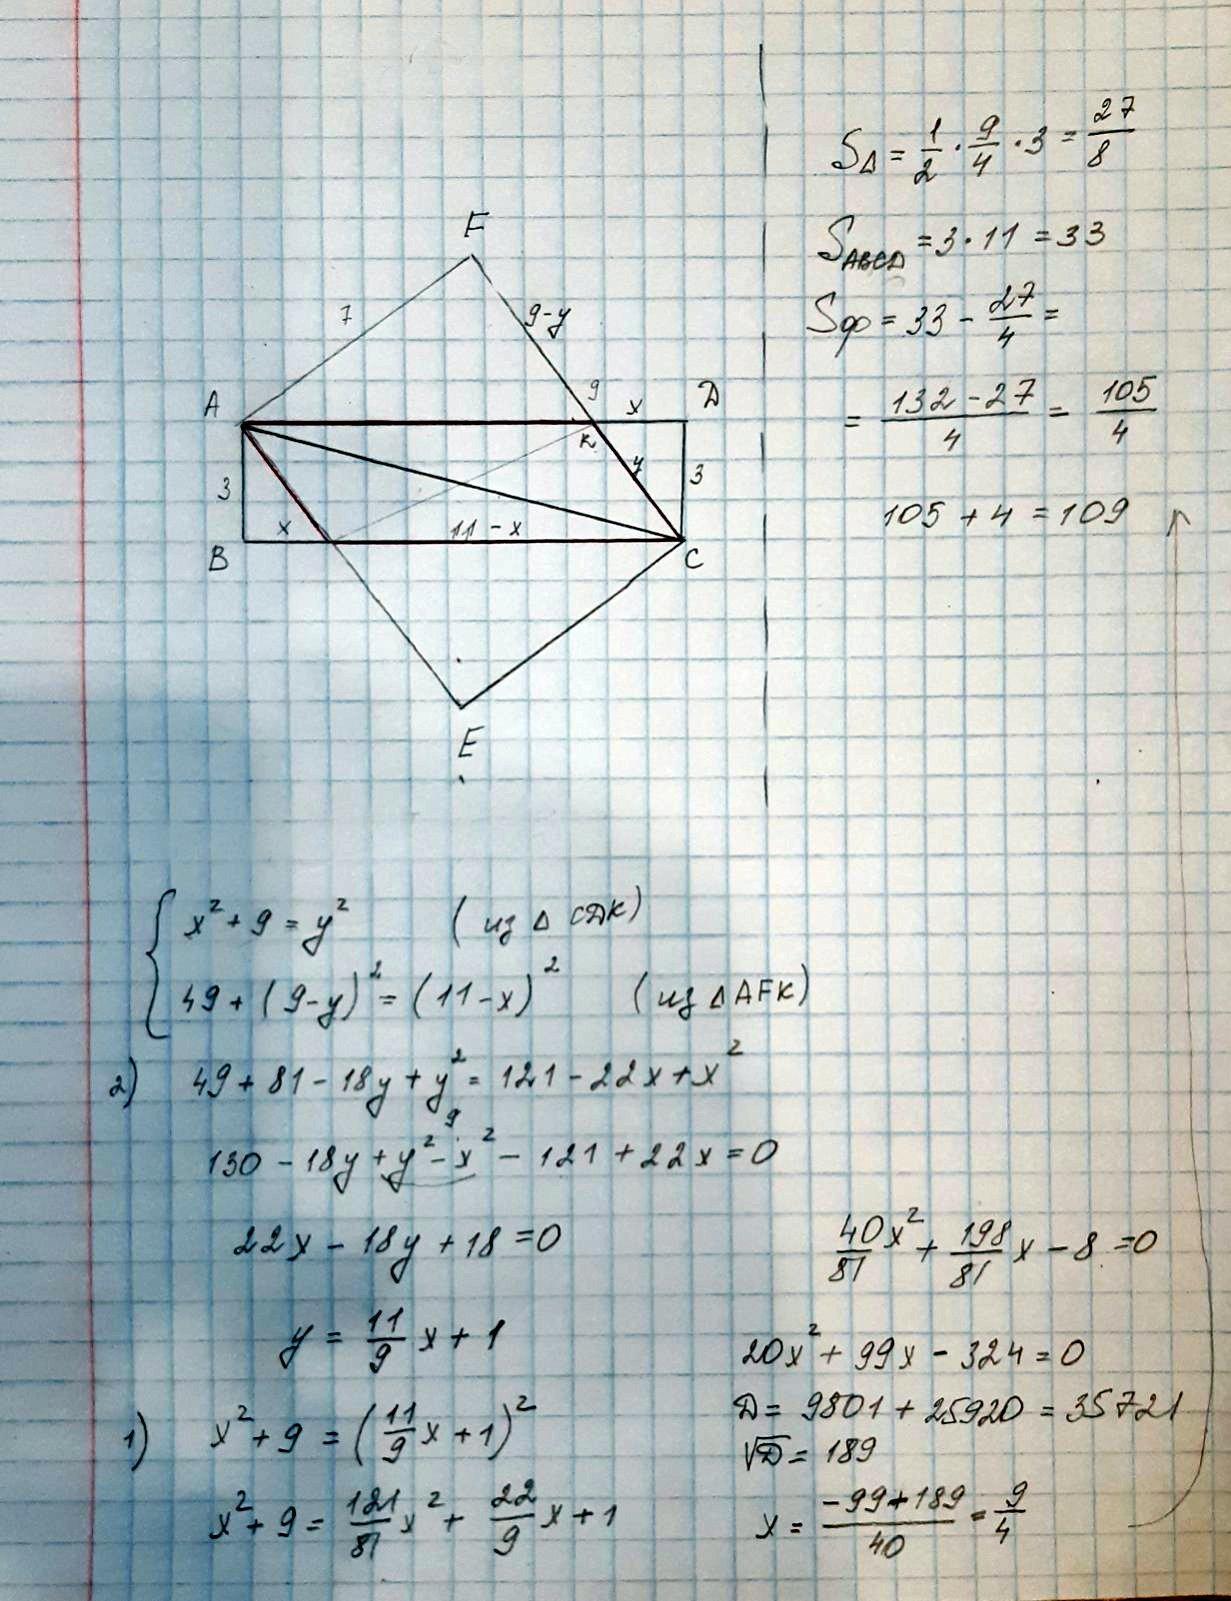 F
7
9-y
9
A
x
D
K
y
3
3
x
11-x
B
C
E
S△ = 1/2 · 9/4 · 3 = 27/8
S_ABCD = 3·11 = 33
Sф = 33 - 27/4 =
= (132-27)/4 = 105/4
105 + 4 = 109
{ x² + 9 = y² (из △ CDK)
49 + (9-y)² = (11-x)² (из △AFK)
2) 49 + 81 - 18y + y² = 121 - 22x + x²
9
130 - 18y + y² - x² - 121 + 22x = 0
22x - 18y + 18 = 0
y = 11/9 x + 1
1) x² + 9 = (11/9 x + 1)²
x² + 9 = 121/81 x² + 22/9 x + 1
40/81 x² + 198/81 x - 8 = 0
20x² + 99x - 324 = 0
D = 9801 + 25920 = 35721
√D = 189
x = (-99+189)/40 = 9/4